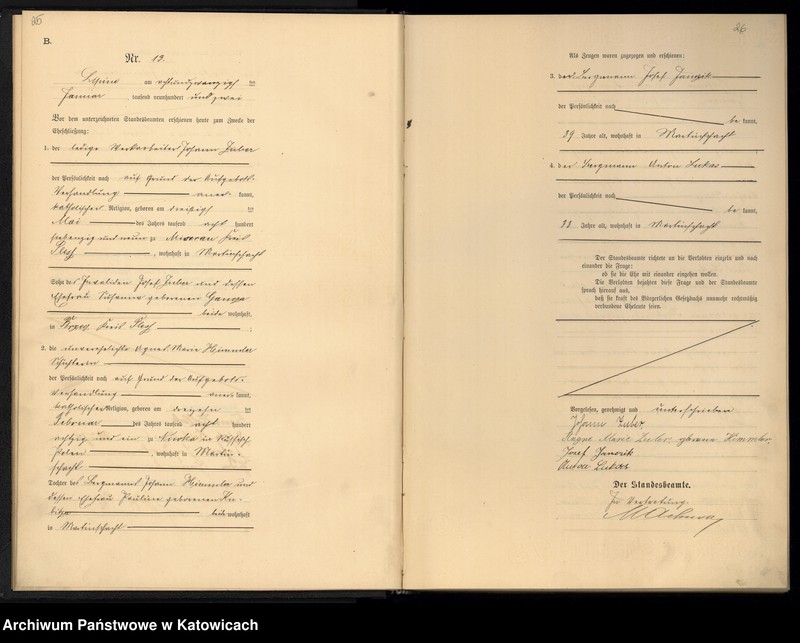 25
B.
Nr. 13.
am achtundzwanzigsten
Januar tausend neunhundert und zwei
Vor dem unterzeichneten Standesbeamten erschienen heute zum Zwecke der
Eheschließung:
1. der ledige Johann Zuber
der Persönlichkeit nach auf Grund der Aufgebots-
Verhandlung kannt,
katholischer Religion, geboren am dreißig
Mai des Jahres tausend acht hundert
siebenzig und neun zu Kreis
Pleß, wohnhaft in Martinschacht
Sohn des Invaliden Josef Zuber und dessen
Ehefrau Susanna geborenen
beide wohnhaft
in Kreis Pleß
2. die unverehelichte Agnes Marie Himmler
der Persönlichkeit nach auf Grund der Aufgebots-
Verhandlung kannt,
katholischer Religion, geboren am dreizehn
Februar des Jahres tausend acht hundert
achtzig und ein zu in Russisch
Polen, wohnhaft in Martin-
schacht
Tochter des Bergmanns Johann Himmler und
dessen Ehefrau Pauline geborenen
beide wohnhaft
in Martinschacht
26
Als Zeugen waren zugezogen und erschienen:
3. der Bergmann Josef
der Persönlichkeit nach
be kannt,
29 Jahre alt, wohnhaft in Martinschacht
4. der Bergmann Anton Lukas
der Persönlichkeit nach
be kannt,
33 Jahre alt, wohnhaft in Martinschacht
Der Standesbeamte richtete an die Verlobten einzeln und nach
einander die Frage:
ob sie die Ehe mit einander eingehen wollen.
Die Verlobten bejahten diese Frage und der Standesbeamte
sprach hierauf aus,
daß sie kraft des Bürgerlichen Gesetzbuchs nunmehr rechtmäßig
verbundene Eheleute seien.
Vorgelesen, genehmigt und unterschrieben
Johann Zuber
Marie Zuber geborene Himmler.
Josef
Anton Lukas
Der Standesbeamte.
In Vertretung.
Archiwum Państwowe w Katowicach